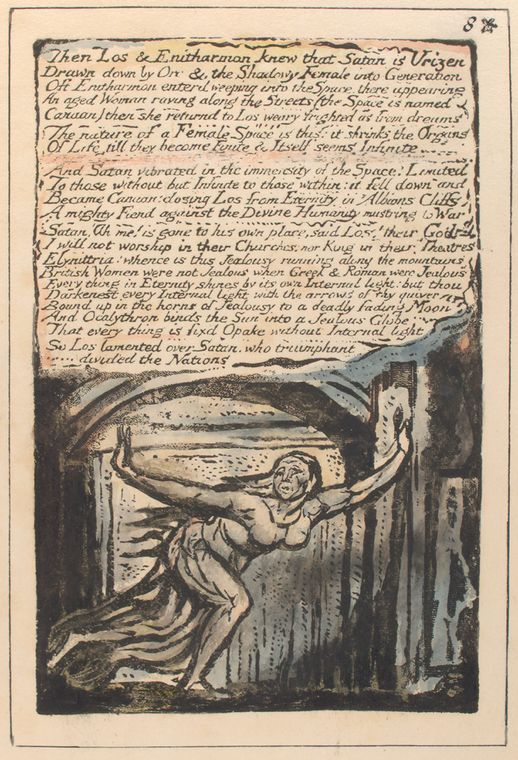 8
Then Los & Enitharmon knew that Satan is Urizen
Drawn down by Orc & the Shadowy Female into Generation
Oft Enitharmon enterd weeping into the Space, there appearing
An aged Woman raving along the Streets (the Space is named
Canaan) then she returned to Los weary frighted as from dreams
The nature of a Female Space is this: it shrinks the Organs
Of Life till they become Finite & Itself seems Infinite
And Satan vibrated in the immensity of the Space! Limited
To those without but Infinite to those within: it fell down and
Became Canaan: closing Los from Eternity in Albions Cliffs
A mighty Fiend against the Divine Humanity mustring to War
Satan! Ah me! is gone to his own place, said Los! their God
I will not worship in their Churches, nor King in their Theatres
Elynittria! whence is this Jealousy running along the mountains
British Women were not Jealous when Greek & Roman were Jealous
Every thing in Eternity shines by its own Internal light: but thou
Darkenest every Internal light with the arrows of thy quiver
Bound up in the horns of Jealousy to a deadly fading Moon
And Ocalythron binds the Sun into a Jealous Globe
That every thing is fixd Opake without Internal light
So Los lamented over Satan, who triumphant
divided the Nations